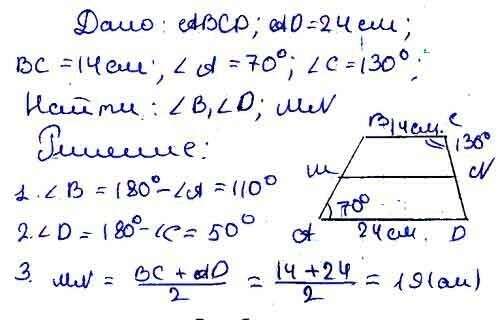 Дано: ABCD; AD=24см;
BC=14см; ∠A=70°; ∠C=130°;
Найти: ∠B, ∠D; MN
Решение:
1. ∠B = 180°-∠A = 110°
2. ∠D = 180°-∠C = 50°
3. MN = (BC + AD)/2 = (14+24)/2 = 19(см)
B 14см. C
130°
M N
70°
A 24см. D